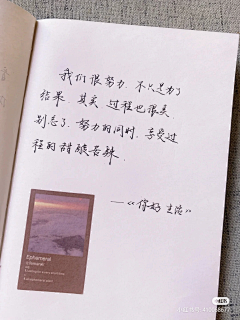 我们很努力.不只是为了
结果.其实.过程也很美.
别忘了.努力的同时.享受过
程的甜酸苦辣.
——《你好 生活》
Ephemeral
小红书